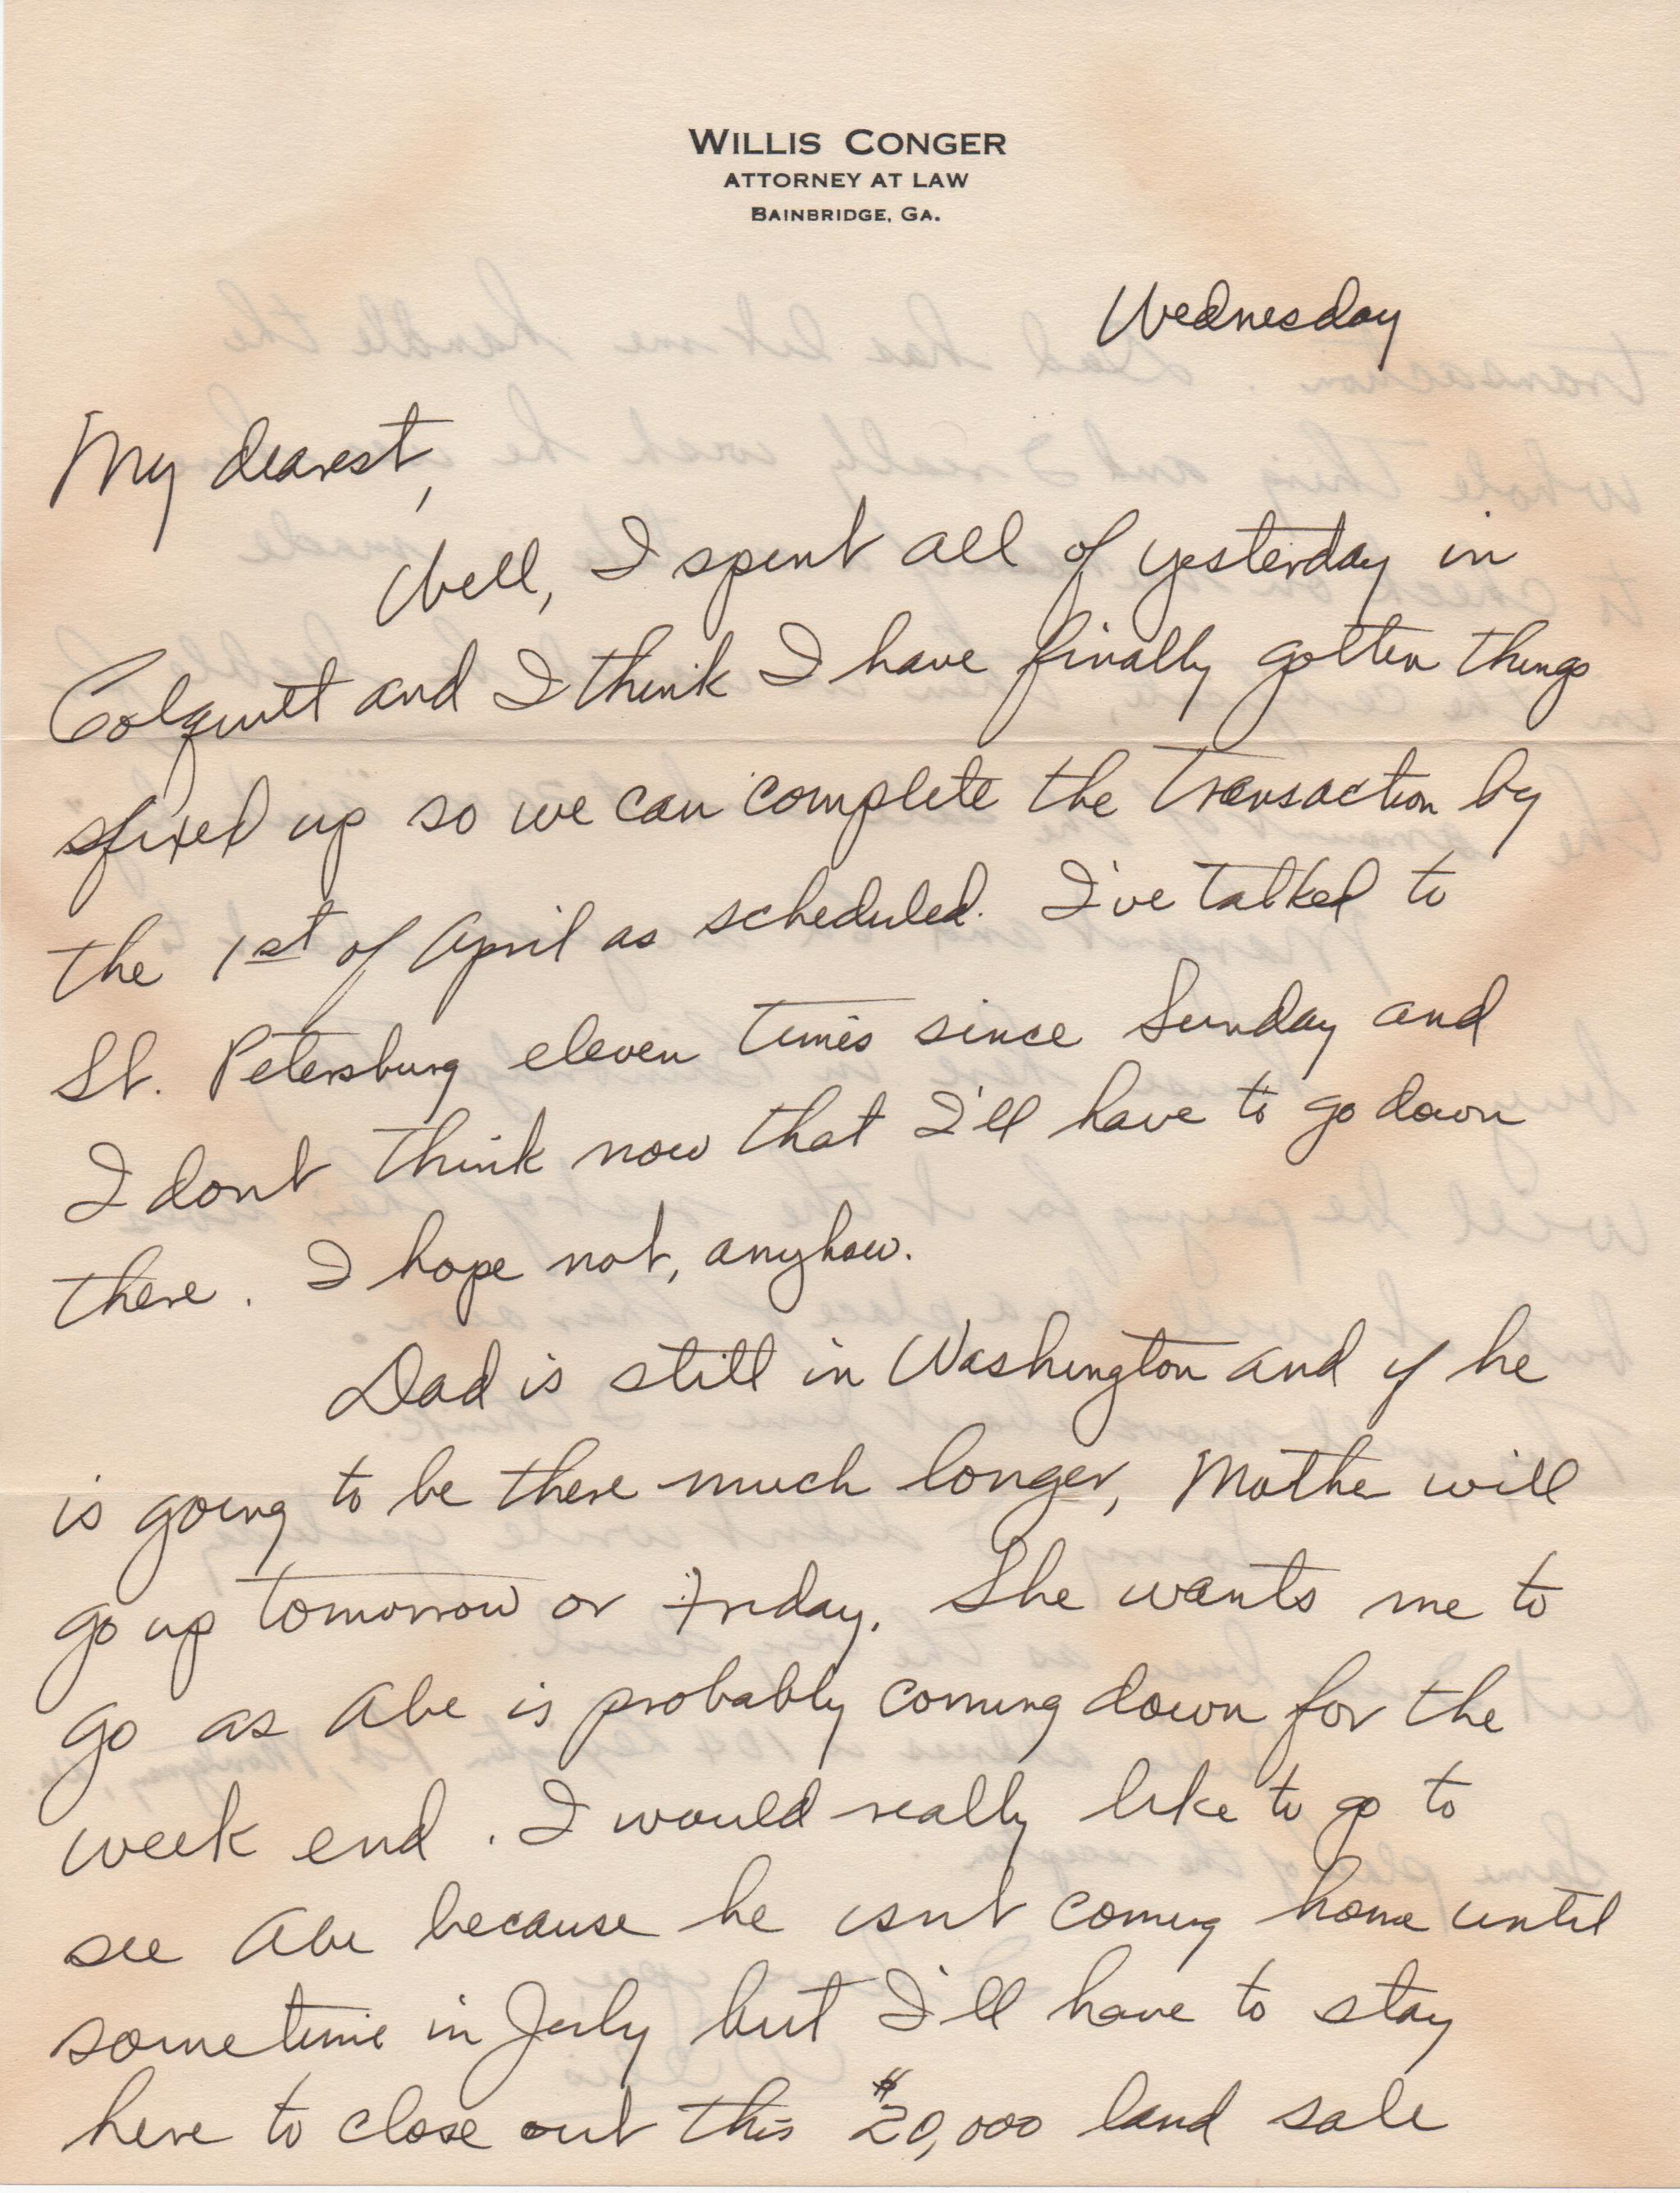 WILLIS CONGER
ATTORNEY AT LAW
BAINBRIDGE, GA.
Wednesday
My dearest,
Well, I spent all of yesterday in
Colquitt and I think I have finally gotten things
fixed up so we can complete the transaction by
the 1st of April as scheduled. I've talked to
St. Petersburg eleven times since Sunday and
I dont think now that I'll have to go down
there. I hope not, anyhow.
Dad is still in Washington and if he
is going to be there much longer, Mother will
go up tomorrow or Friday. She wants me to
go as Abe is probably coming down for the
week end. I would really like to go to
see Abe because he isnt coming home until
sometime in July but I'll have to stay
here to close out this $20,000 land sale